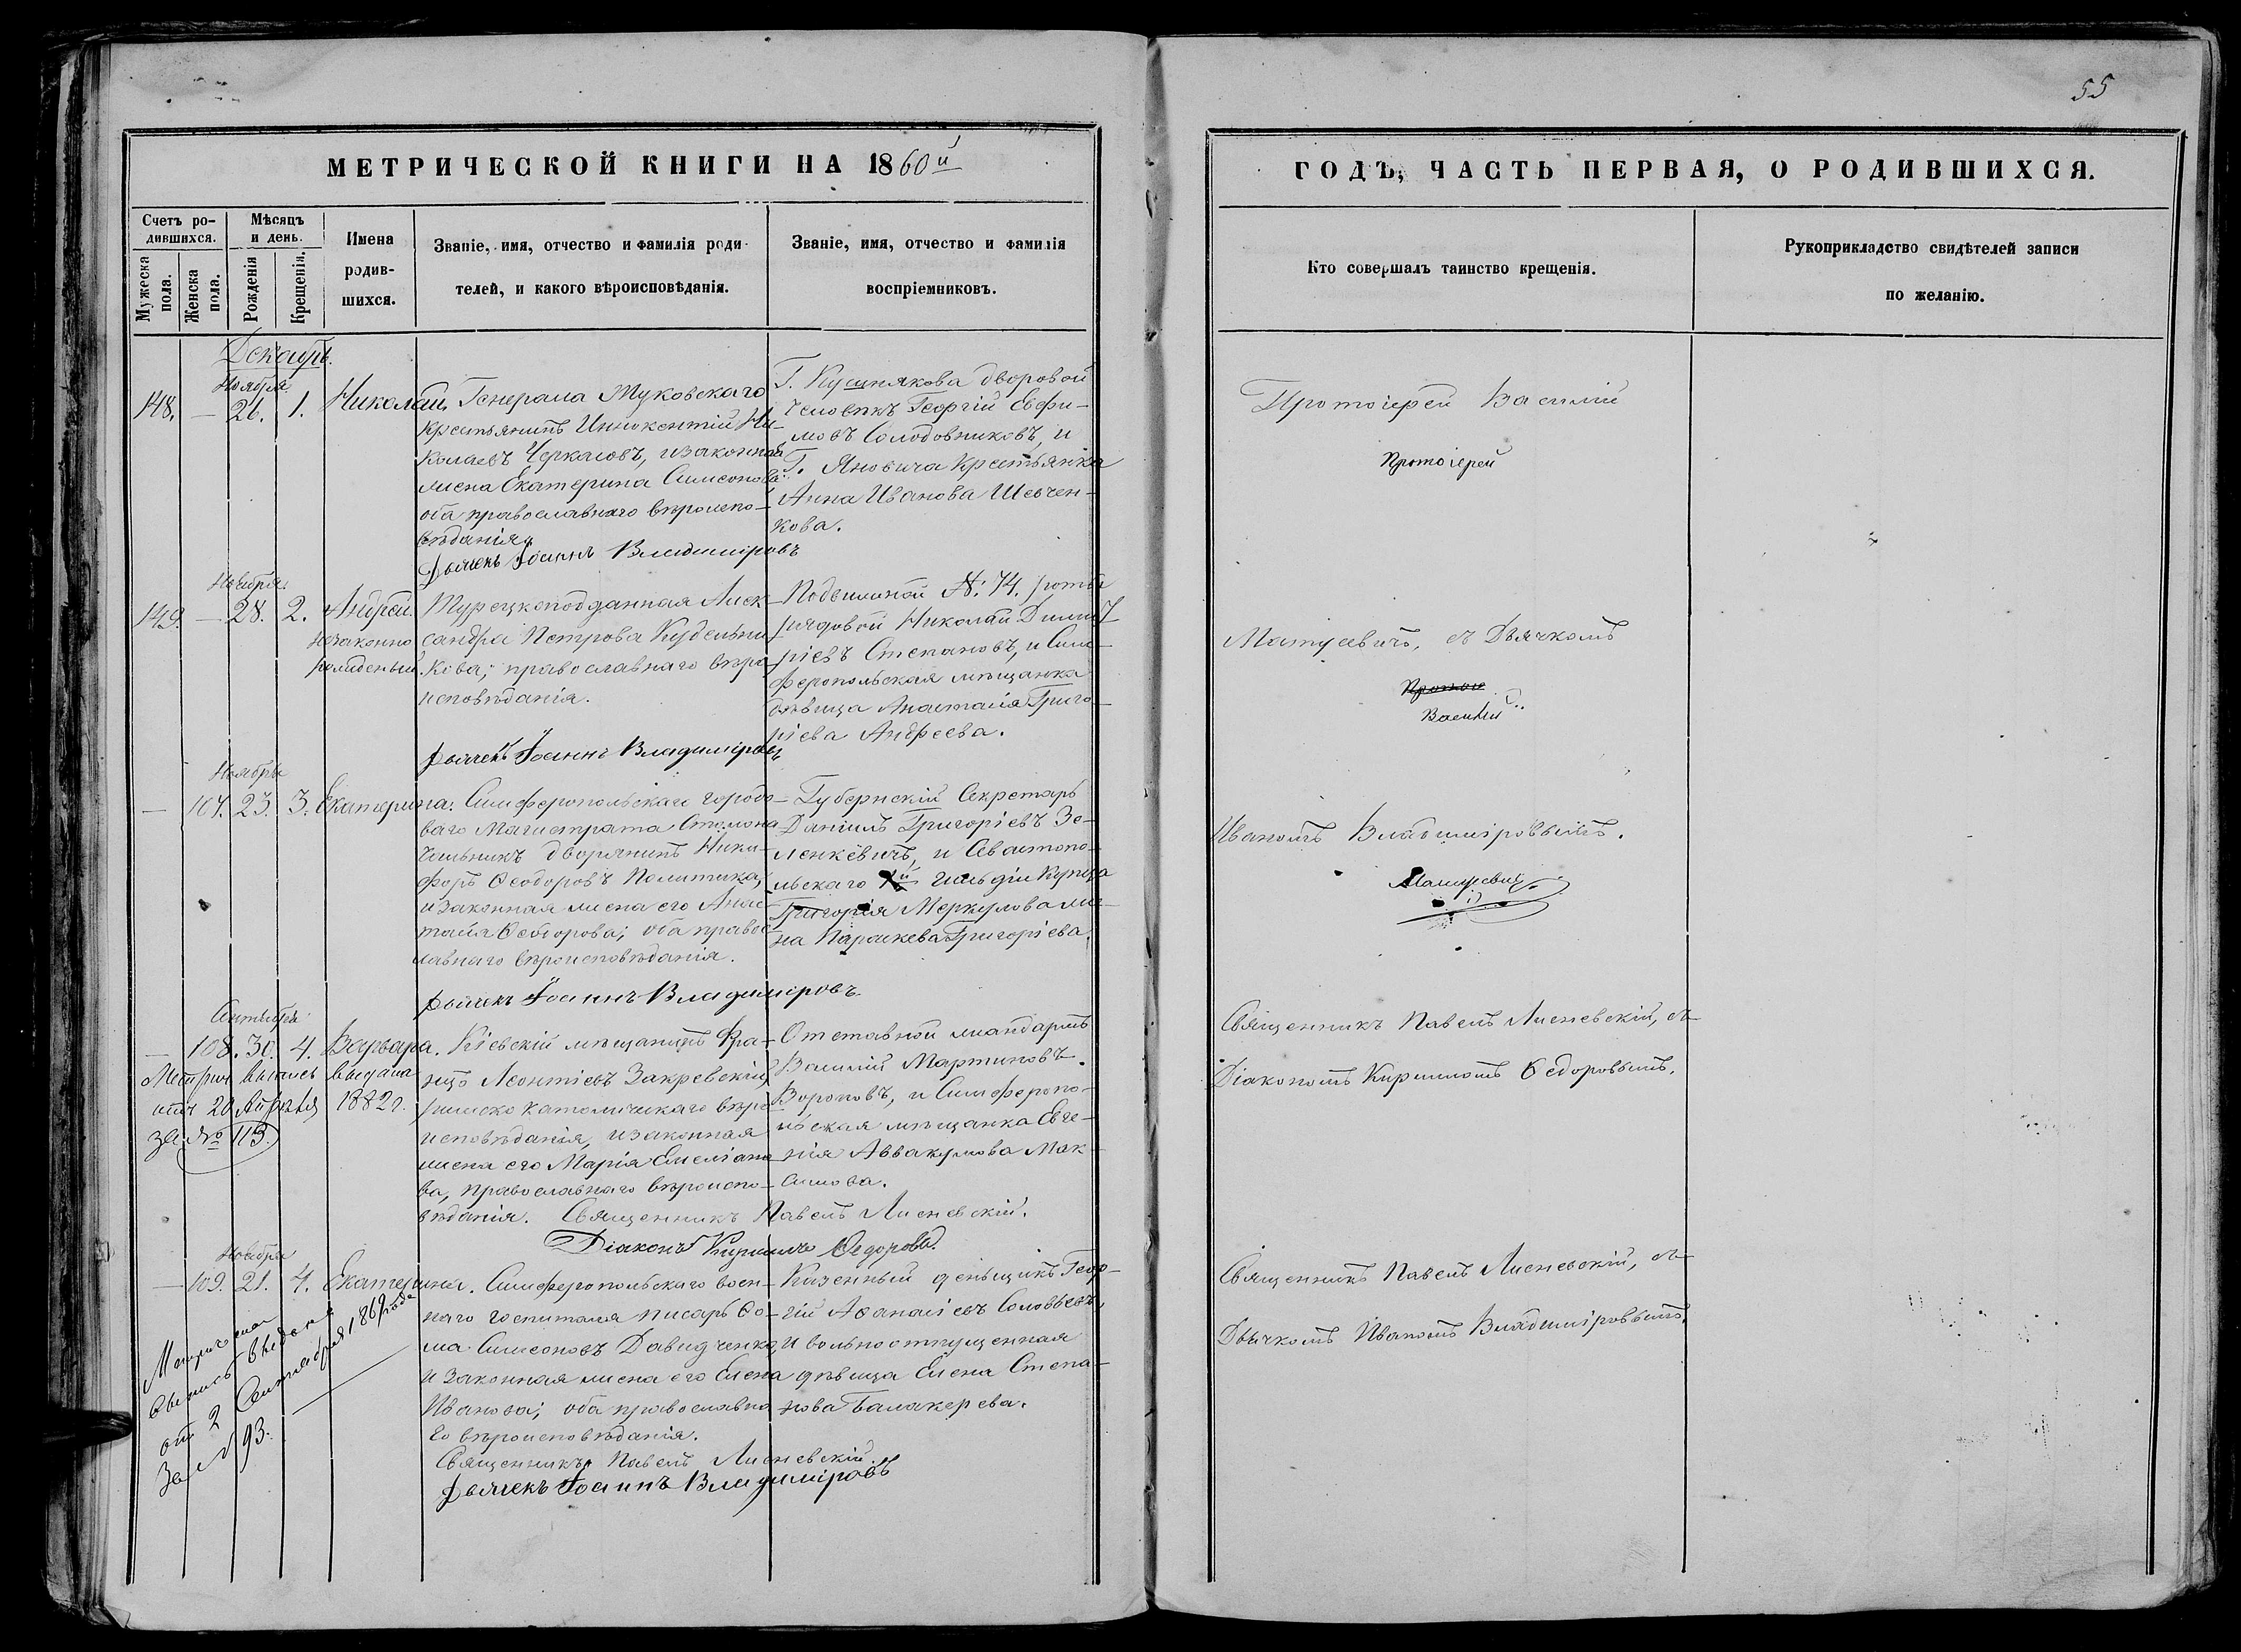 55
МЕТРИЧЕСКОЙ КНИГИ НА 1860й
ГОДЪ, ЧАСТЬ ПЕРВАЯ, О РОДИВШИХСЯ.
Счетъ ро-
дившихся.
Мужеска пола.
Женска пола.
Мѣсяцъ
и день.
Рожденія
Крещенія.
Имена
родив-
шихся.
Званіе, имя, отчество и фамилія роди-
телей, и какого вѣроисповѣданія.
Званіе, имя, отчество и фамилія
воспріемниковъ.
Кто совершалъ таинство крещенія.
Рукоприкладство свидѣтелей записи
по желанію.
Декабрь.
Ноября
148. — 26. 1. Николай.
Генерала Жуковскаго
крестьянинъ Иннокентій Ни-
колаевъ Черкасовъ, и законная
жена Екатерина Симеонова
оба православнаго вѣроиспо-
вѣданія.
Дьячекъ Іоаннъ Владиміровъ
Г. Кушнякова дворовой
человѣкъ Георгій Евфи-
мовъ Солодовниковъ, и
Г. Яновича крестьянка
Анна Иванова Шевчен-
кова.
Протоіерей Василій
Протоіерей
Ноября.
149. — 28. 2. Андрей.
незаконно
рожденный.
Турецкоподданная Алек-
сандра Петрова Кудельни
кова; православнаго вѣро
исповѣданія.
Дьячекъ Іоаннъ Владиміровъ
Подвижной №. 74. роты
рядовой Николай Димит
ріевъ Степановъ, и Сим-
феропольская мѣщанка
дѣвица Анастасія Григо-
ріева Андреева.
Матусевичъ, съ Дьячкомъ
Василій
Ноября
— 107. 23. 3. Екатерина.
Симферопольскаго городо-
ваго Магистрата Столона
чальникъ дворянинъ Ники-
форъ Ѳеодоровъ Политика,
и законная жена его Анас
тасія Ѳеодорова; оба правос
лавнаго вѣроисповѣданія.
Дьячекъ Іоаннъ Владиміровъ.
Губернскій Секретарь
Даніилъ Григоріевъ Зе-
ленкевичъ, и Севастопо-
льскаго гильдіи купца
Григорія Меркулова же-
на Параскева Григоріева.
Иваномъ Владиміровымъ.
Матусевичъ
Сентября
— 108. 30. 4. Варвара.
Метрич. выпись выдана
20 Апрѣля 1882 г.
за № 113.
Кіевскій мѣщанинъ Фра-
нцъ Леонтіевъ Закревскій,
римско католическаго вѣро
исповѣданія, и законная
жена его Марія Емеліано
ва, православнаго вѣроиспо-
вѣданія. Священникъ Павелъ Лисневскій.
Діаконъ Кириллъ Ѳедоровъ.
Отставной жандармъ
Василій Мартиновъ
Вороновъ, и Симферопо-
льская мѣщанка Евге-
нія Аввакумова Мак-
симова.
Священникъ Павелъ Лисневскій, съ
Діакономъ Кирилломъ Ѳедоровымъ.
Ноября
— 109. 21. 4. Екатерина.
Метрическая
выпись выдана
отъ 2 Сентября 1869 года
За № 93.
Симферопольскаго воен-
наго госпиталя писарь Ѳо-
ма Симеоновъ Давидченко,
и законная жена его Елена
Иванова; оба православна
го вѣроисповѣданія.
Священникъ Павелъ Лисневскій.
Дьячекъ Іоаннъ Владиміровъ
Казенный деньщикъ Геор-
гій Аѳанасіевъ Соловьевъ,
и вольноотпущенная
дѣвица Елена Степа-
нова Балакерева.
Священникъ Павелъ Лисневскій, съ
Дьячкомъ Иваномъ Владиміровымъ.